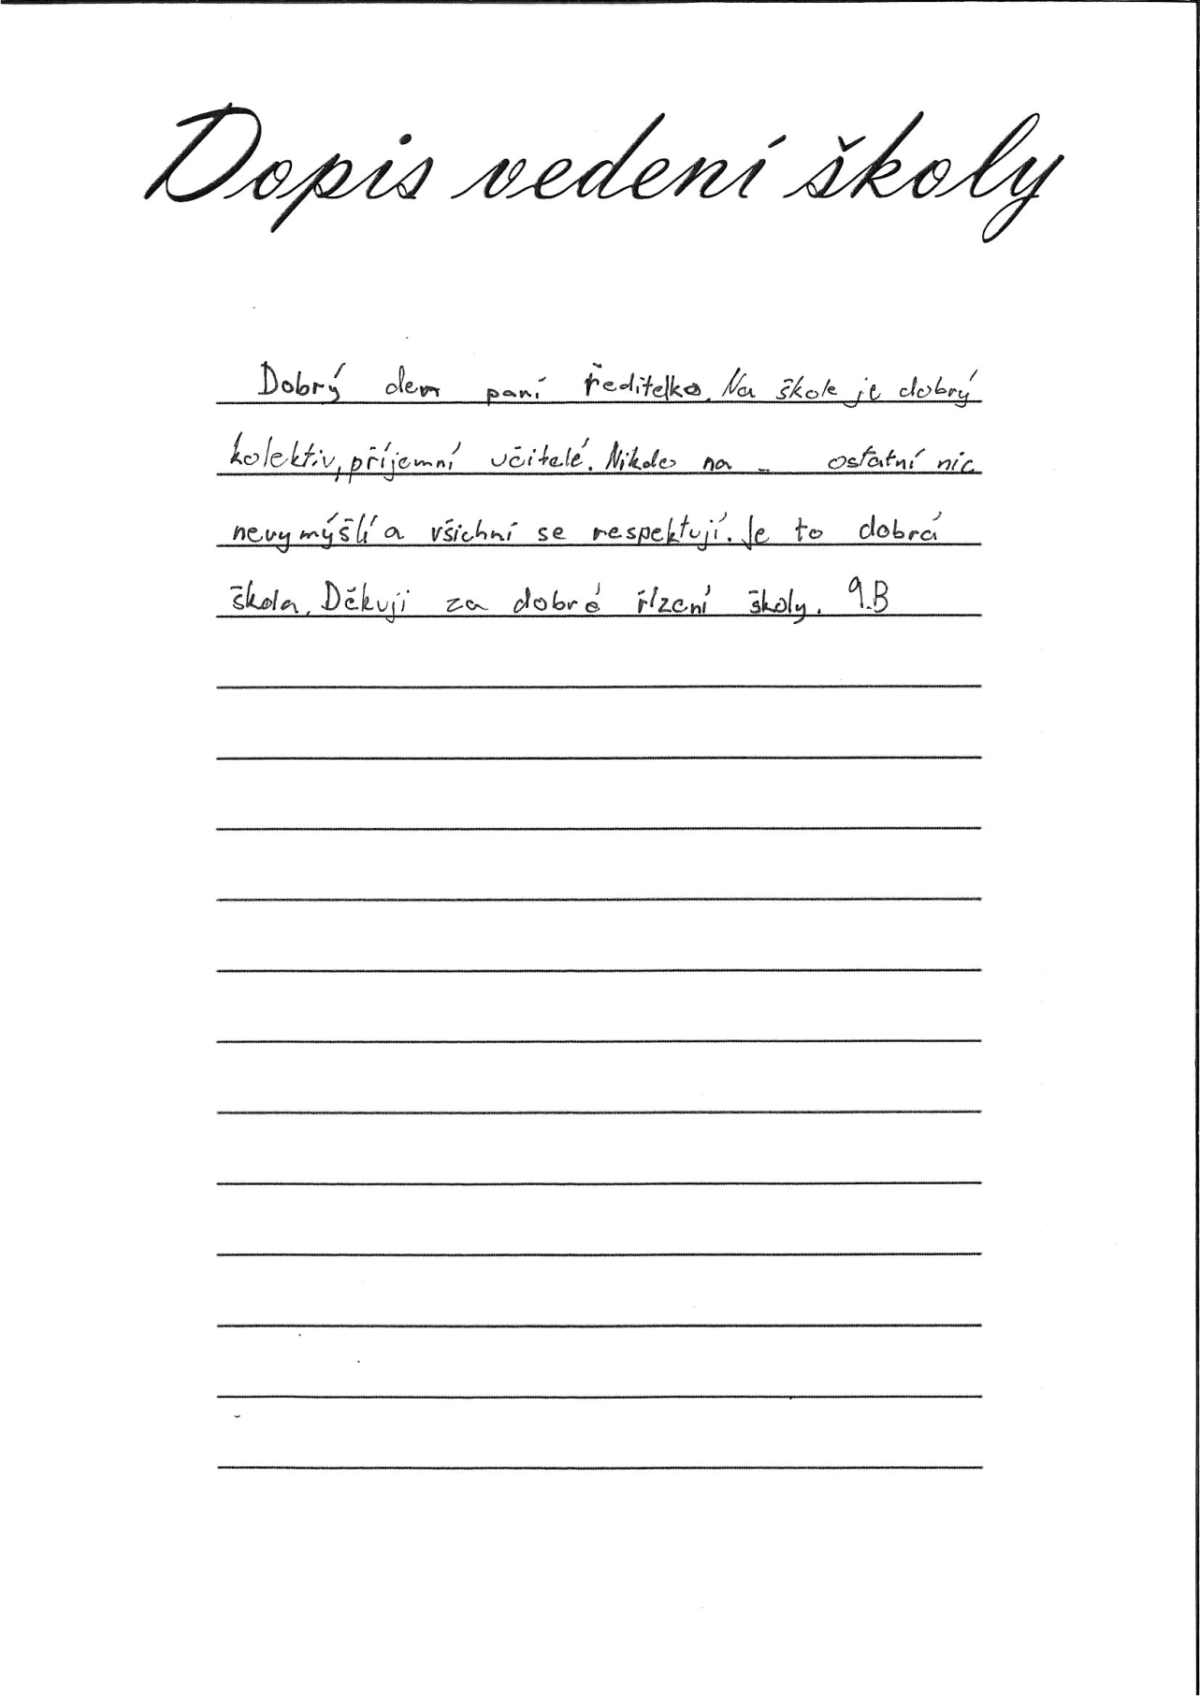 Dopis vedení školy
Dobrý den paní ředitelko. Na škole je dobrý
kolektiv, příjemní učitelé. Nikdo na ostatní nic
nevymýšlí a všichni se respektují. Je to dobrá
škola. Děkuji za dobré řízení školy. 9.B